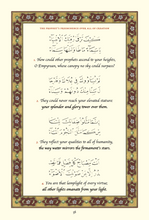 THE PROPHET'S PREEMINENCE OVER ALL OF CREATION
كَيْفَ تَرْقَى رُقِيَّكَ الْأَنْبِيَاءُ
يَا سَمَاءً مَا طَاوَلَتْهَا سَمَاءُ
1. How could other prophets ascend to your heights,
O Empyrean, whose canopy no sky could surpass?
لَمْ يُسَاوُوكَ فِي عُلَاكَ وَقَدْ حَالَ
سَنًا مِنْكَ دُونَهُمْ وَسَنَاءُ
2. They could never reach your elevated station:
your splendor and glory tower over them.
إِنَّمَا مَثَّلُوا صِفَاتِكَ لِلنَّاسِ
كَمَا مَثَّلَ النُّجُومَ الْمَاءُ
3. They reflect your qualities to all of humanity,
the way water mirrors the firmament's stars.
أَنْتَ مِصْبَاحُ كُلِّ فَضْلٍ فَمَا تَصْدُرُ
إِلَّا عَنْ ضَوْئِكَ الْأَضْوَاءُ
4. You are that lamplight of every virtue;
all other lights emanate from your gleam.